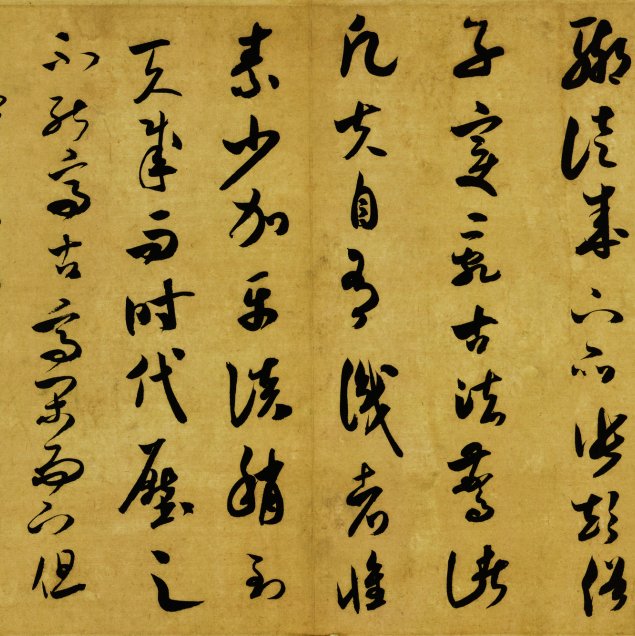 聊徒成下品張顛俗
子變亂古法驚諸
凡夫自有識者懷
素少加平淡稍到
天成而時代壓之
不能高古高閑而下但